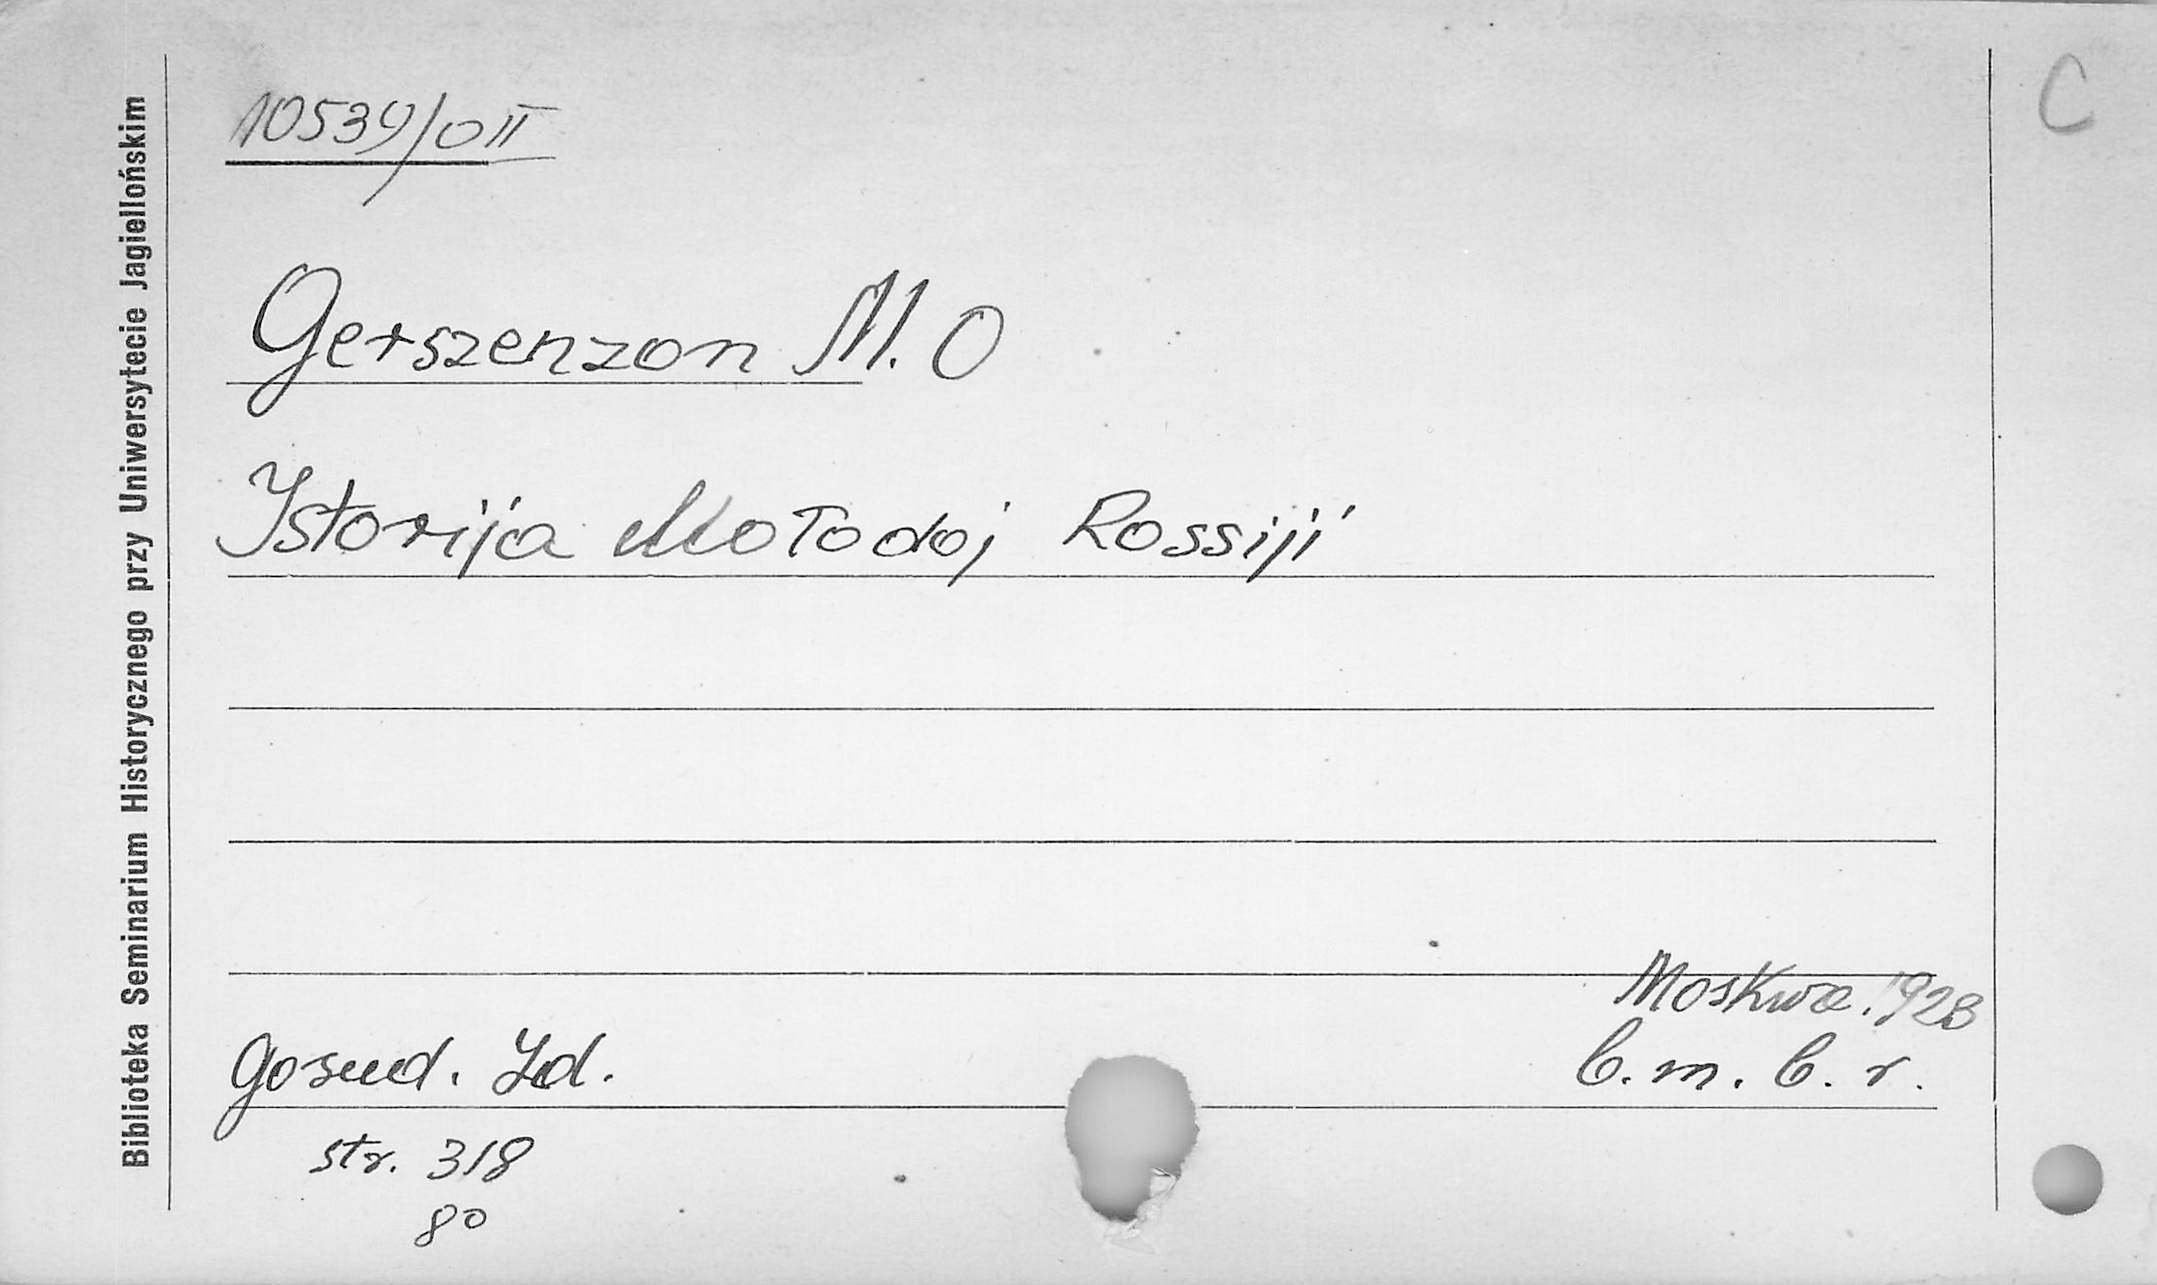 Biblioteka Seminarium Historycznego przy Uniwersytecie Jagiellońskim
10539/OII
C
Gerszenzon M. O
Istorija Mołodoj Rossiji
Moskwa. 1923
Gosud. Izd.
b. m. b. r.
str. 318
8°